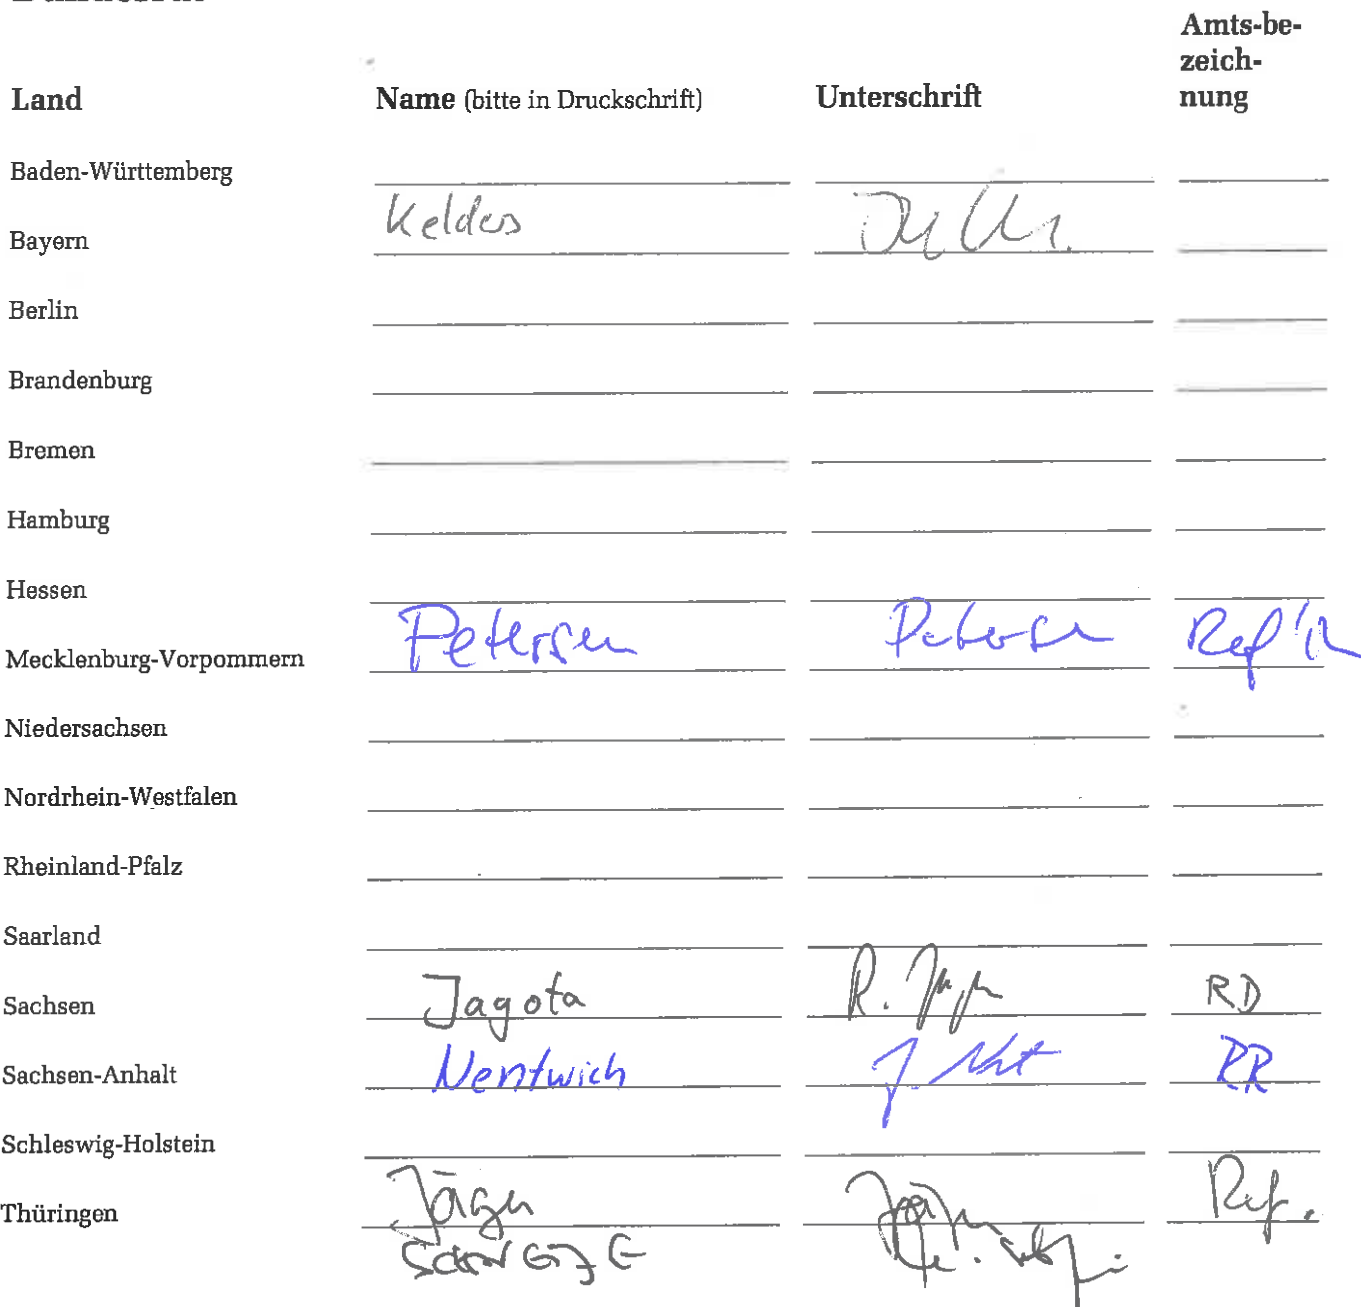 Amts-be-
zeich-
Land Name (bitte in Druckschrift) Unterschrift nung
Baden-Württemberg
Bayern Keldus
Berlin
Brandenburg
Bremen
Hamburg
Hessen
Mecklenburg-Vorpommern Petersen Petersen Ref'in
Niedersachsen
Nordrhein-Westfalen
Rheinland-Pfalz
Saarland
Sachsen Jagota R. RD
Sachsen-Anhalt Nentwich J. RR
Schleswig-Holstein
Thüringen Jäger Jäger Ref.